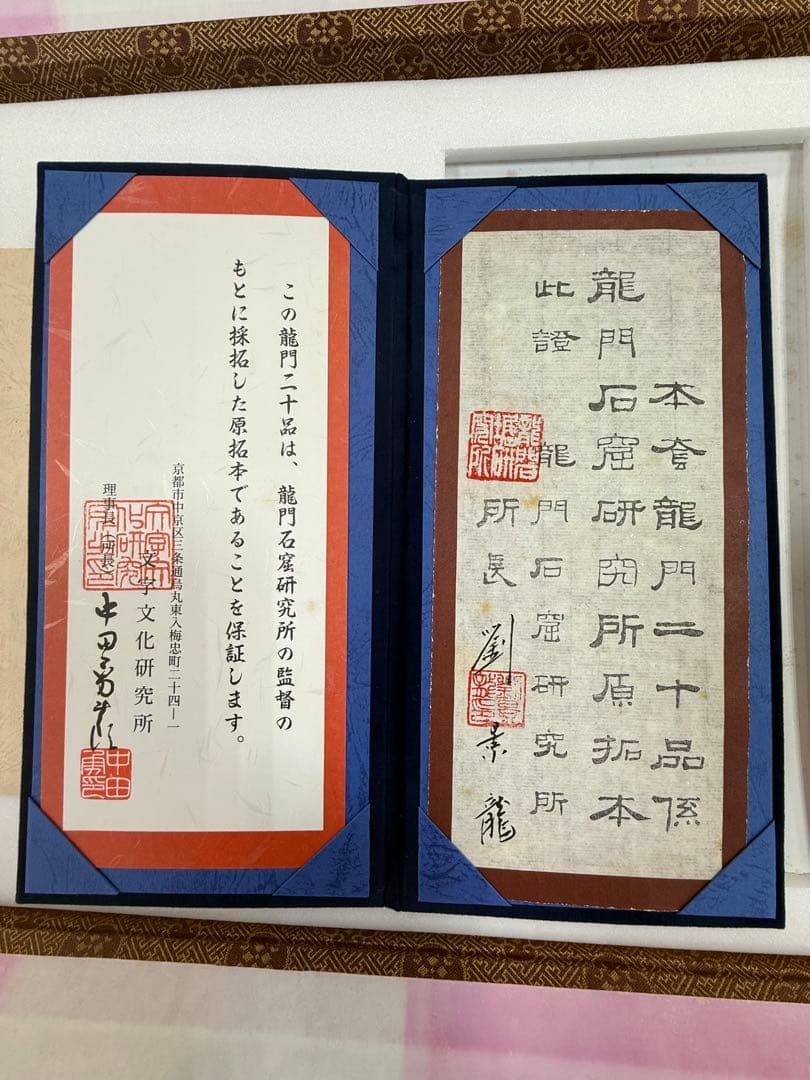 本套龍門二十品係
龍門石窟研究所原拓本
此證 龍門石窟研究所
所長 劉景龍
この龍門二十品は、龍門石窟研究所の監督の
もとに採拓した原拓本であることを保証します。
京都市中京区三条通烏丸東入梅忠町二十四―一
文字文化研究所
理事長(所長) 中田勇